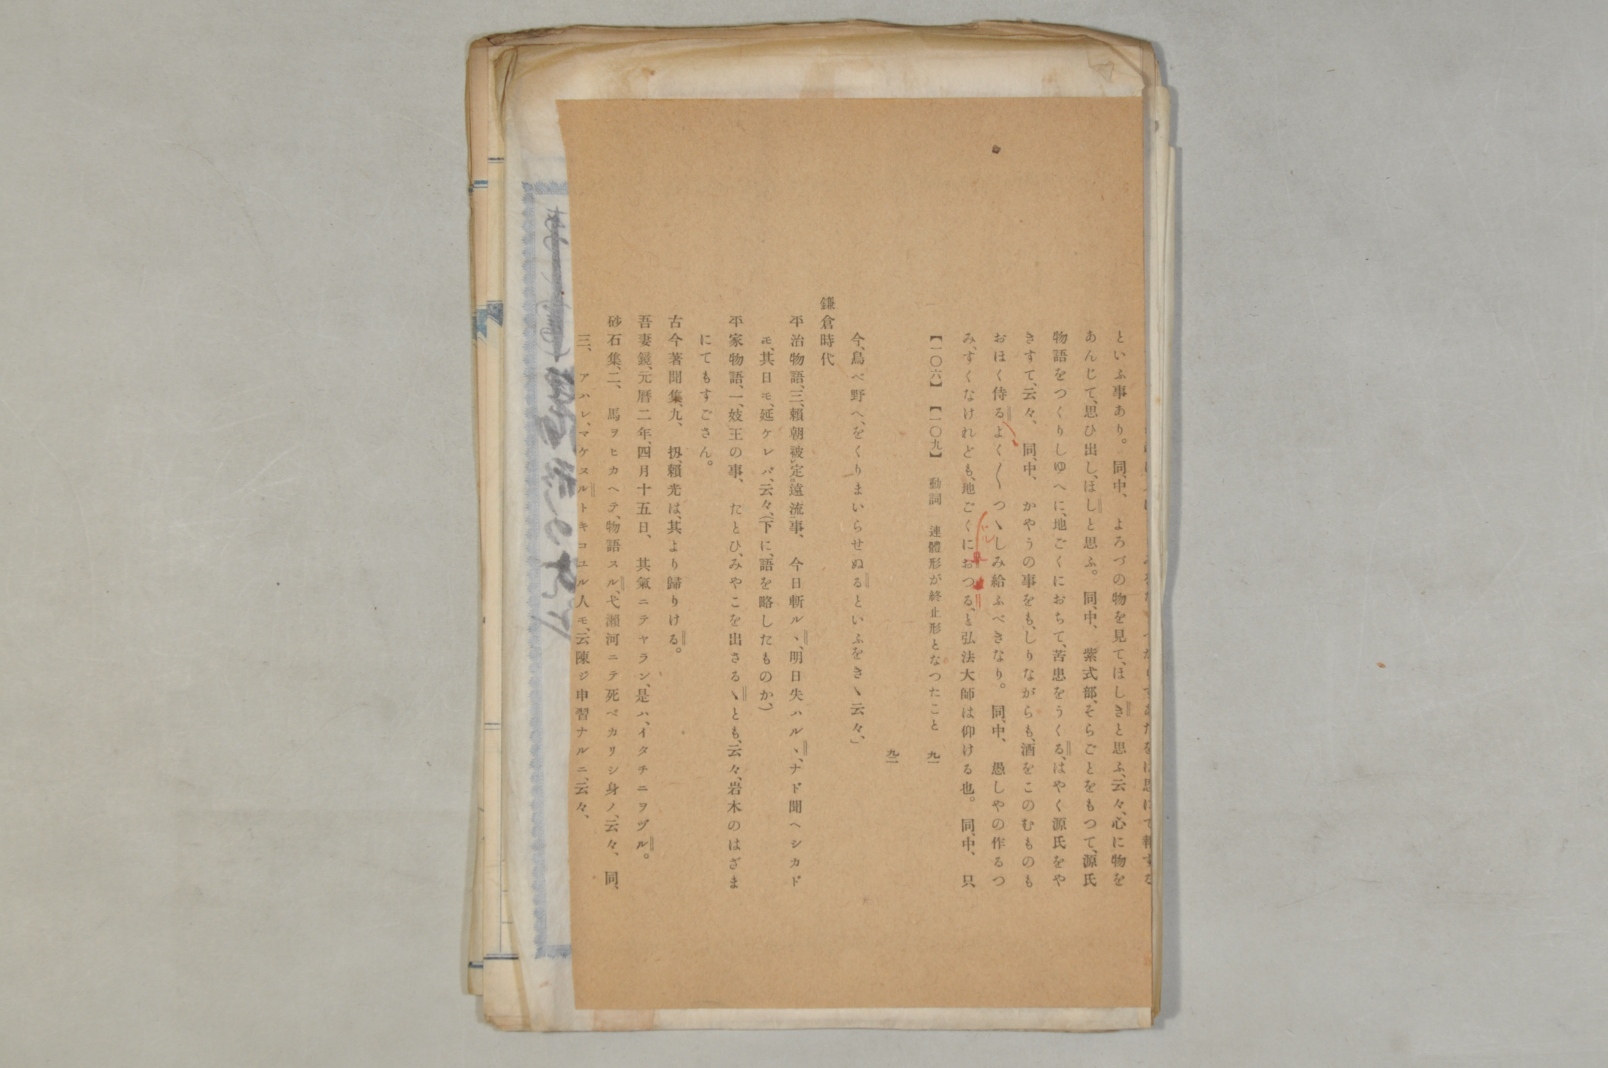 といふ事あり。同、中、よろづの物を見て、ほしきと思ふ、云々、心に物を
あんじて、思ひ出し、ほしと思ふ。同、中、紫式部、そらごとをもつて、源氏
物語をつくりしゆへに、地ごくにおちて、苦患をうくる、はやく源氏をや
きすて、云々、同、中、かやうの事をも、しりながらも、酒をこのむものも
おほく侍るよく〳〵つヽしみ給ふべきなり。同、中、愚しやの作るつ
み、すくなけれども、地ごくにおつる、と弘法大師は仰ける也。同、中、只
【一〇六】【一〇九】動詞 連體形が終止形となつたこと 九一
九二
今、鳥べ野へ、をくりまいらせぬるといふをきヽ云々、
鎌倉時代
平治物語、三、頼朝被定遠流事、今日斬ルヽ、明日失ハルヽ、ナド聞ヘシカド
モ、其日モ、延ケレバ、云々、(下に、語を略したものか、)
平家物語、一、妓王の事、たとひ、みやこを出さるヽとも、云々、岩木のはざま
にてもすごさん。
古今著聞集、九、扨、頼光は、其より歸りける。
吾妻鏡、元暦二年、四月十五日、其氣ニテヤラン、是ハ、イタチニヲヅル。
砂石集、二、馬ヲヒカヘテ、物語スル、弋瀬河ニテ死ベカリシ身ノ、云々、同、
三、アハレ、マケヌルトキコユル人モ、云陳ジ申習ナルニ、云々、